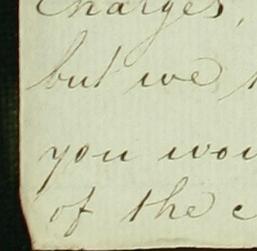 Charges,
but we
you wou
of the c